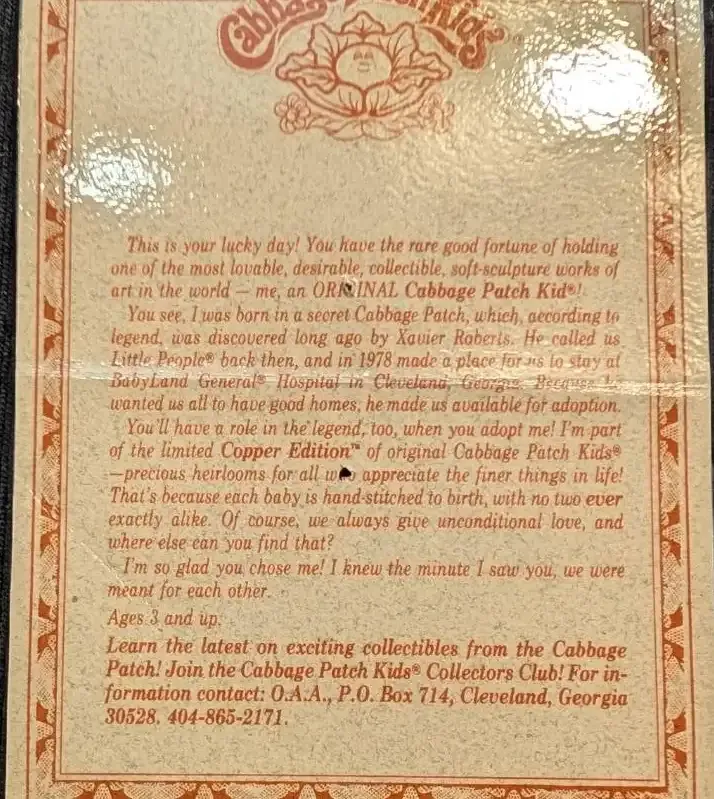 Cabbage Patch Kids
This is your lucky day! You have the rare good fortune of holding
one of the most lovable, desirable, collectible, soft-sculpture works of
art in the world — me, an ORIGINAL Cabbage Patch Kid®!
You see, I was born in a secret Cabbage Patch, which, according to
legend, was discovered long ago by Xavier Roberts. He called us
Little People® back then, and in 1978 made a place for us to stay at
BabyLand General® Hospital in Cleveland, Georgia. Because he
wanted us all to have good homes, he made us available for adoption.
You'll have a role in the legend, too, when you adopt me! I'm part
of the limited Copper Edition™ of original Cabbage Patch Kids®
—precious heirlooms for all who appreciate the finer things in life!
That's because each baby is hand-stitched to birth, with no two ever
exactly alike. Of course, we always give unconditional love, and
where else can you find that?
I'm so glad you chose me! I knew the minute I saw you, we were
meant for each other.
Ages 3 and up.
Learn the latest on exciting collectibles from the Cabbage
Patch! Join the Cabbage Patch Kids® Collectors Club! For in-
formation contact: O.A.A., P.O. Box 714, Cleveland, Georgia
30528. 404-865-2171.